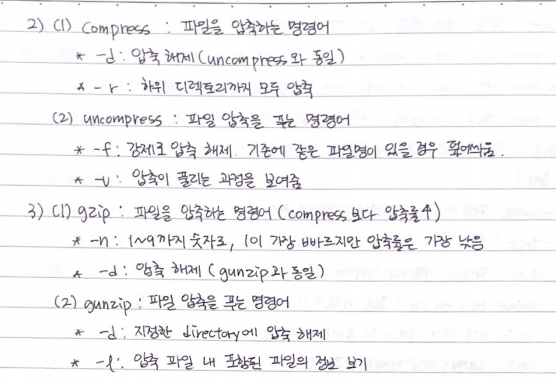 2) (1) compress : 파일을 압축하는 명령어
* -d : 압축 해제 (uncompress와 동일)
* -r : 하위 디렉토리까지 모두 압축
(2) uncompress : 파일 압축을 푸는 명령어
* -f : 강제로 압축 해제. 기존에 같은 파일명이 있을 경우 덮어씌움.
* -v : 압축이 풀리는 과정을 보여줌
3) (1) gzip : 파일을 압축하는 명령어 (compress 보다 압축률↑)
* -n : 1~9까지 숫자로, 1이 가장 빠르지만 압축률은 가장 낮음
* -d : 압축 해제 (gunzip과 동일)
(2) gunzip : 파일 압축을 푸는 명령어
* -d : 지정한 directory에 압축 해제
* -l : 압축 파일 내 포함된 파일의 정보 보기